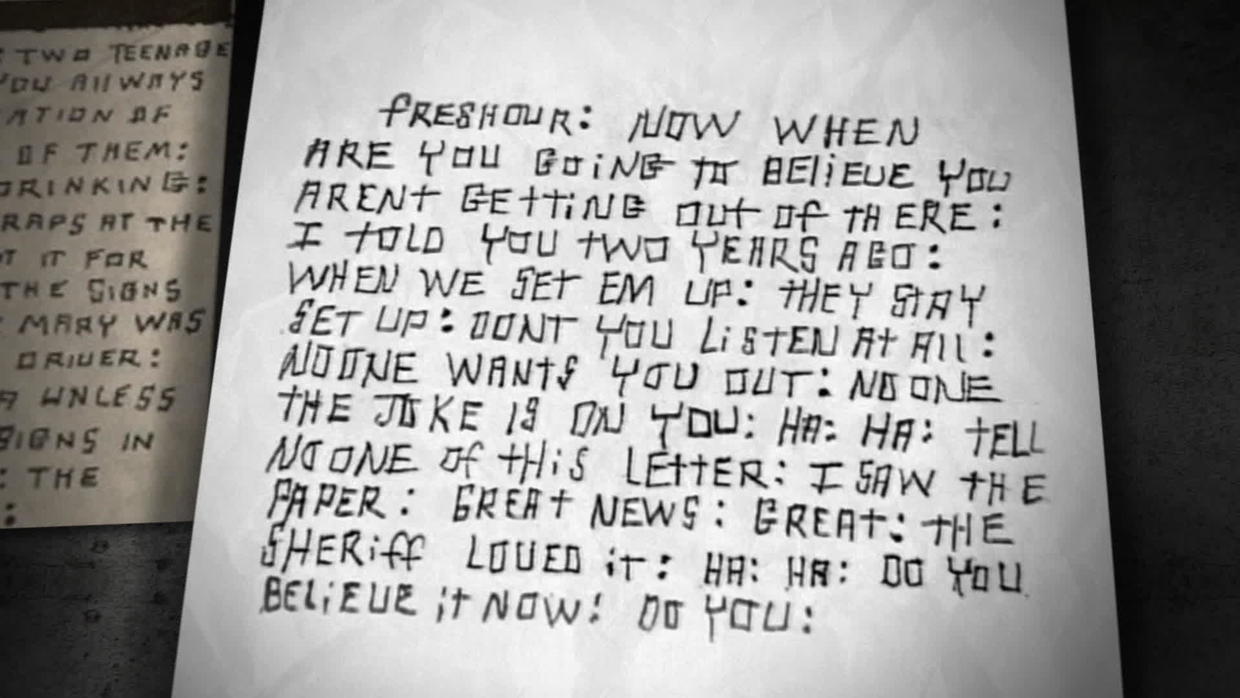 TWO TEENAGE
YOU AllWAYS
ATION OF
OF THEM:
DRINKING:
RAPS AT THE
IT FOR
THE SIGNS
MARY WAS
DRIVER:
UNLESS
SIGNS IN
: THE
:
fRESHOUR: NOW WHEN
ARE YOU GOiNG TO BELiEVE YOU
ARENt GEttiNG OUt Of tHERE:
I tOLD YOU tWO YEARS AGO:
WHEN WE SET EM UP: tHEY StAY
SET UP: DONT YOU LiSTEN At All:
NOONE WANtS YOU OUT: NOONE
tHE JOKE IS ON YOU: HA: HA: tELL
NOONE Of tHiS LEttER: I SAW tHE
PAPER: GREAt NEWS: GREAt: tHE
SHERiff LOVED it: HA: HA: DO YOU
BELiEVE it NOW! DO YOU: